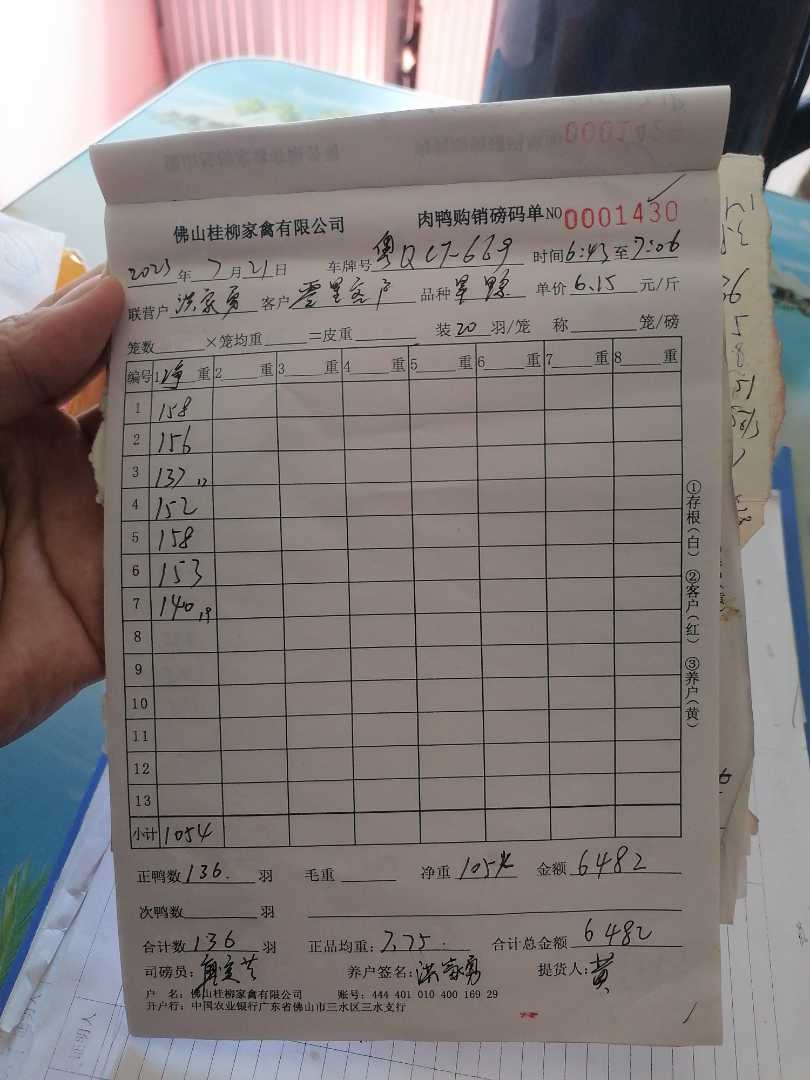 佛山桂柳家禽有限公司 肉鸭购销磅码单 NO 0001430
2023年7月21日 车牌号 粤Q C7-669 时间 6:43 至 7:06
联营户 洪家勇 客户 零星客户 品种 单价 6.15 元/斤
笼数 ×笼均重 =皮重 装 20 羽/笼 称 笼/磅
编号 1 净 重 2 重 3 重 4 重 5 重 6 重 7 重 8 重
1 158
2 156
3 137 17
4 152
5 158
6 153
7 140 19
8
9
10
11
12
13
小计 1054
正鸭数 136. 羽 毛重 净重 1054 金额 6482
次鸭数 羽
合计数 136 羽 正品均重: 7.75 合计总金额 6482
司磅员: 养户签名: 洪家勇 提货人: 黄
户 名: 佛山桂柳家禽有限公司 账号: 444 401 010 400 169 29
开户行: 中国农业银行广东省佛山市三水区三水支行
①存根(白) ②客户(红) ③养户(黄)